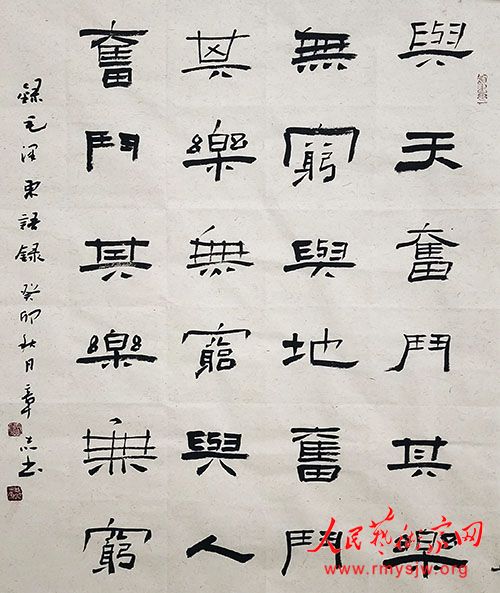 與天奮鬥其樂
無窮與地奮鬥
其樂無窮與人
奮鬥其樂無窮
錄毛泽東語錄 癸卯秋月章志书
人民藝术家网
www.rmysjw.org